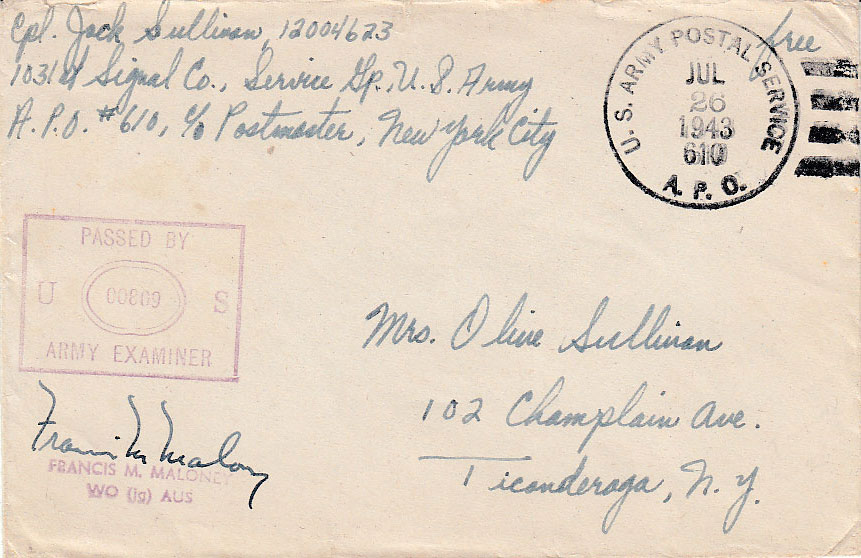 Cpl. Jack Sullivan, 12004623
1031st Signal Co., Service Gp., U.S. Army
A.P.O. #610, c/o Postmaster, New York City
free
U.S. ARMY POSTAL SERVICE
JUL
26
1943
610
A.P.O.
PASSED BY
U 00809 S
ARMY EXAMINER
Mrs. Olive Sullivan
102 Champlain Ave.
Ticonderoga, N.Y.
Francis M Maloney
FRANCIS M. MALONEY
WO (jg) AUS